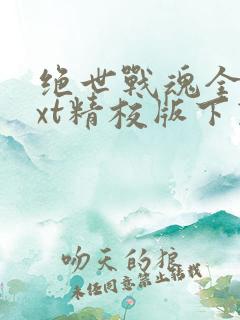 绝世战魂全
xt精校版下
吻天的狼
未经同意禁止转载